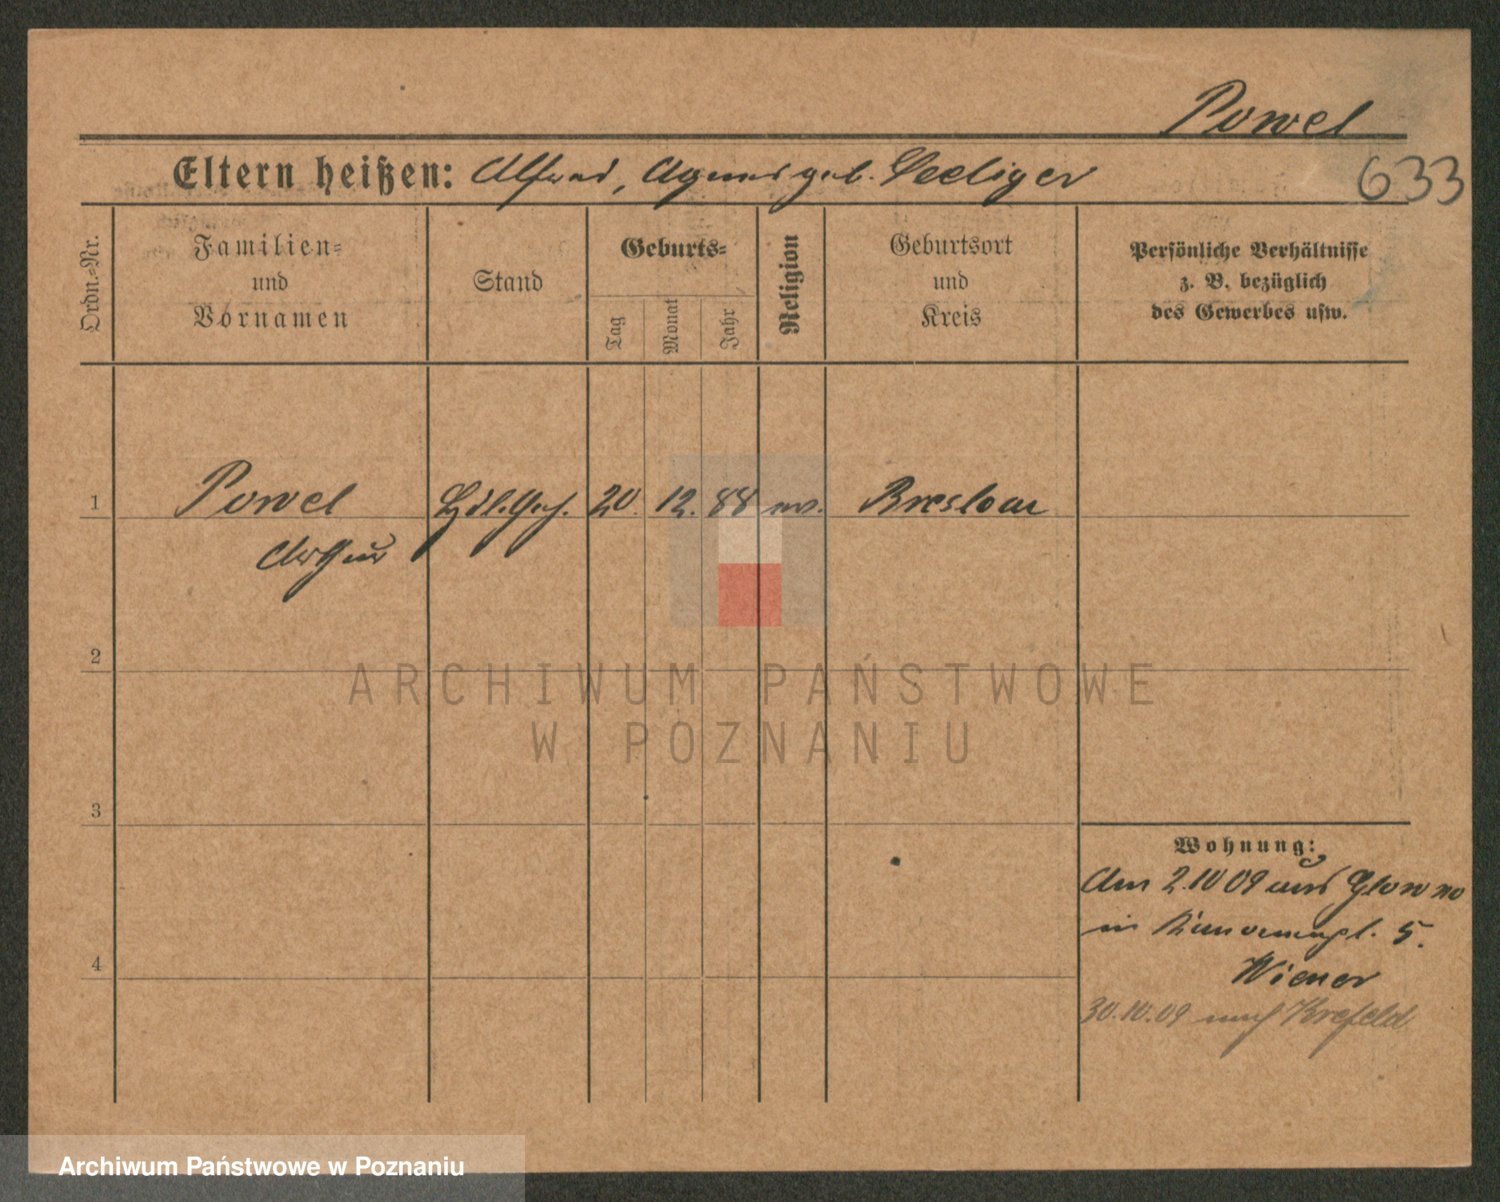 Powel
Eltern heißen: Alfred, Agnes geb. Seeliger
633
Ordn.-Nr.
Familien- und Vornamen
Stand
Geburts-
Tag
Monat
Jahr
Religion
Geburtsort und Kreis
Persönliche Verhältnisse
z. B. bezüglich
des Gewerbes usw.
1 Powel Hdl. Geh. 20. 12. 88 ev. Breslau
Arthur
2
3
4
Wohnung:
Am 2.10 09 aus Glowno
in 5.
Wiener
30.10.09 nach Krefeld
ARCHIWUM PAŃSTWOWE
W POZNANIU
Archiwum Państwowe w Poznaniu